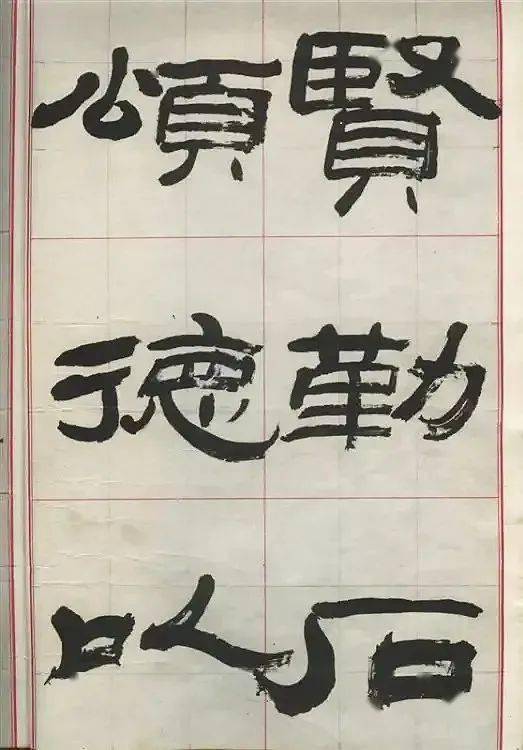 賢勤石
頌德以